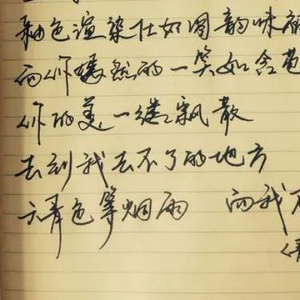 釉色渲染仕女图韵味
而你嫣然的一笑如含苞
你的美一缕飘散
去到我去不了的地方
天青色等烟雨 而我